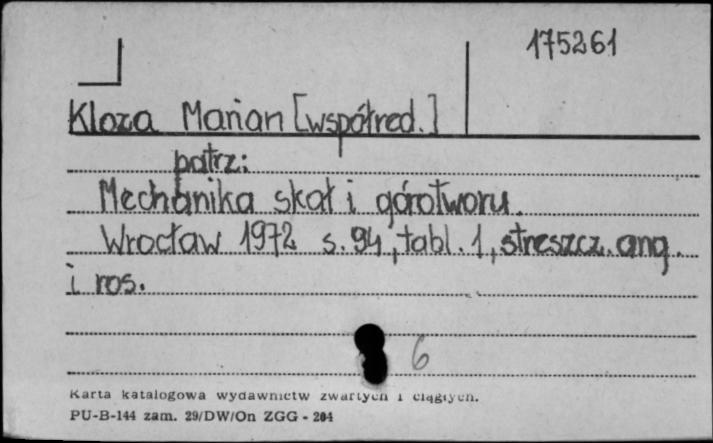 175261
Kloza Marian [współred.]
patrz:
Mechanika skał i górotworu.
Wrocław 1972 s. 94, tabl. 1, streszcz. ang.
i ros.
6
Karta katalogowa wydawnictw zwartych i ciągłych.
PU-B-144 zam. 29/DW/On ZGG - 204